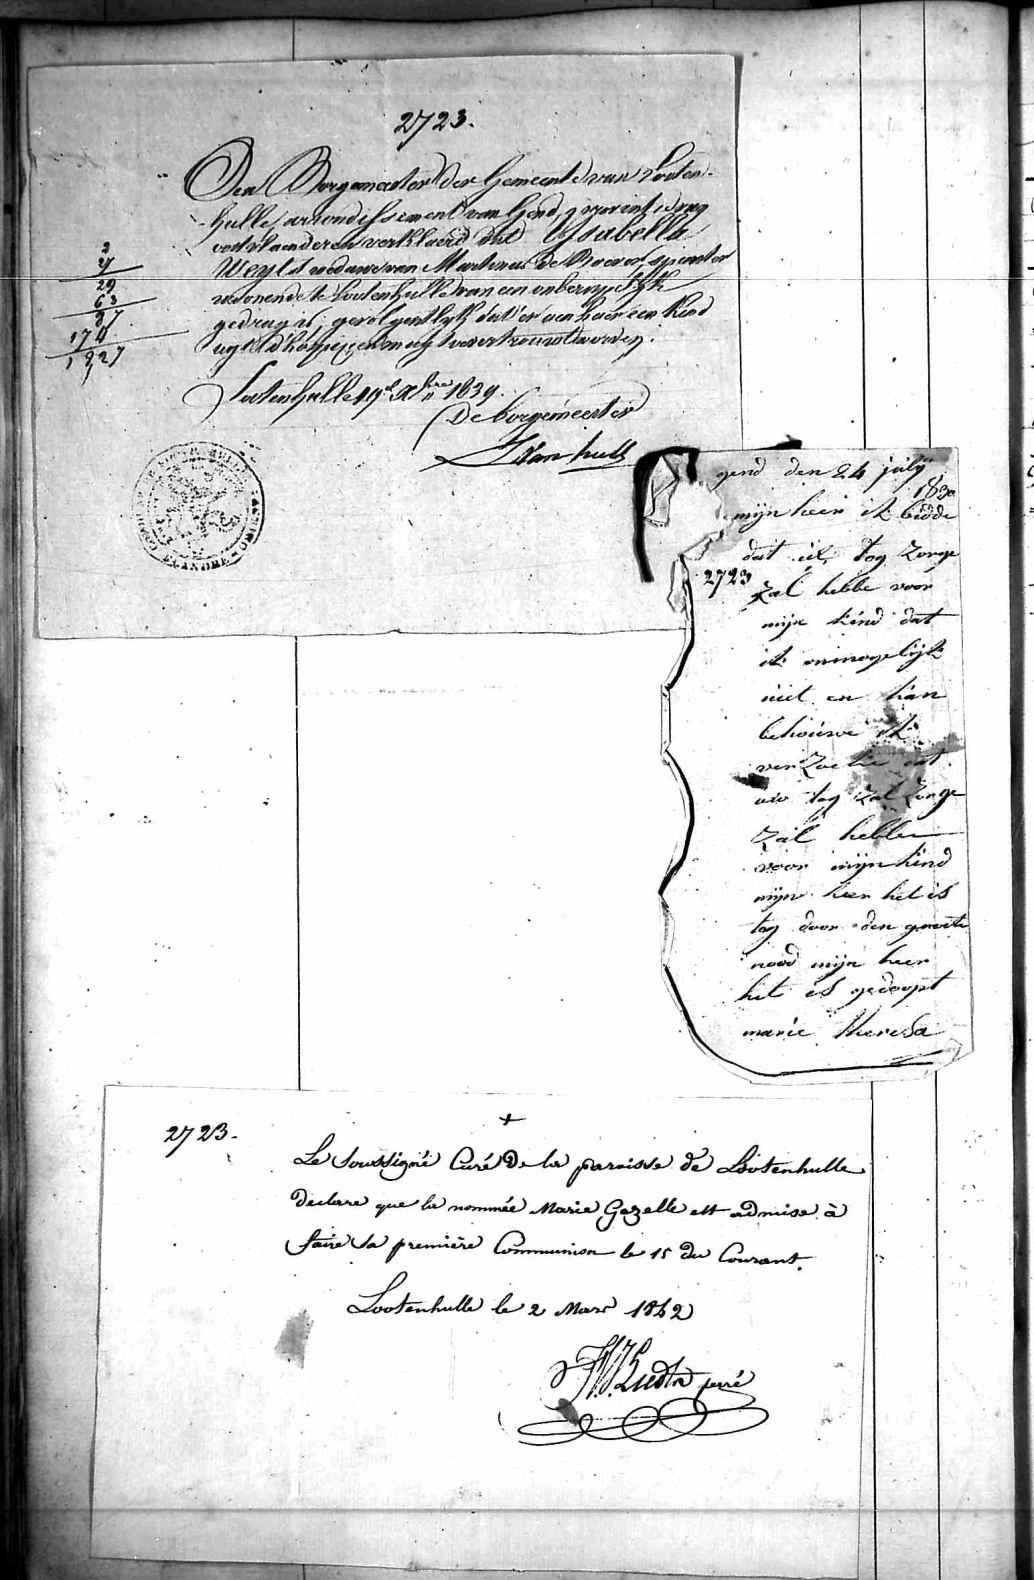 2723.
Den Borgemeester der Gemeente van Looten-
hulle, arrondissement van Gend, provintie van
oostvlaenderen verklaerd dat Isabella
Weyts weduwe van Martinus De Baever, spinster
woonende te Lootenhulle van een onberispelyk
gedrag is, gevolgentlyk dat er aen haer een kind
uyt d'hospicien mag toevertrouwd worden.
Lootenhulle 19e Xbre 1839.
De borgemeester
Van hulle
2
27
29
63
87
174
1827
FLANDRE
gend den 24 julij
1830
mijn heer ik bidde
dat ul, tog zorge
2723
zal hebbe voor
mijn kind dat
ik onmogelijk
niet en kan
behouwe ik
verzoeke dat
uw tog zal zorge
zal hebben
voor mijn kind
mijn heer het is
tog door den groote
nood mijn heer
het is gedoopt
marie theresa
2723.
+
Le soussigné Curé de la paroisse de Lootenhulle
declare que la nommée Marie Gazelle est admise à
faire sa première Communion le 15 du Courant.
Lootenhulle le 2 Mars 1842
curé